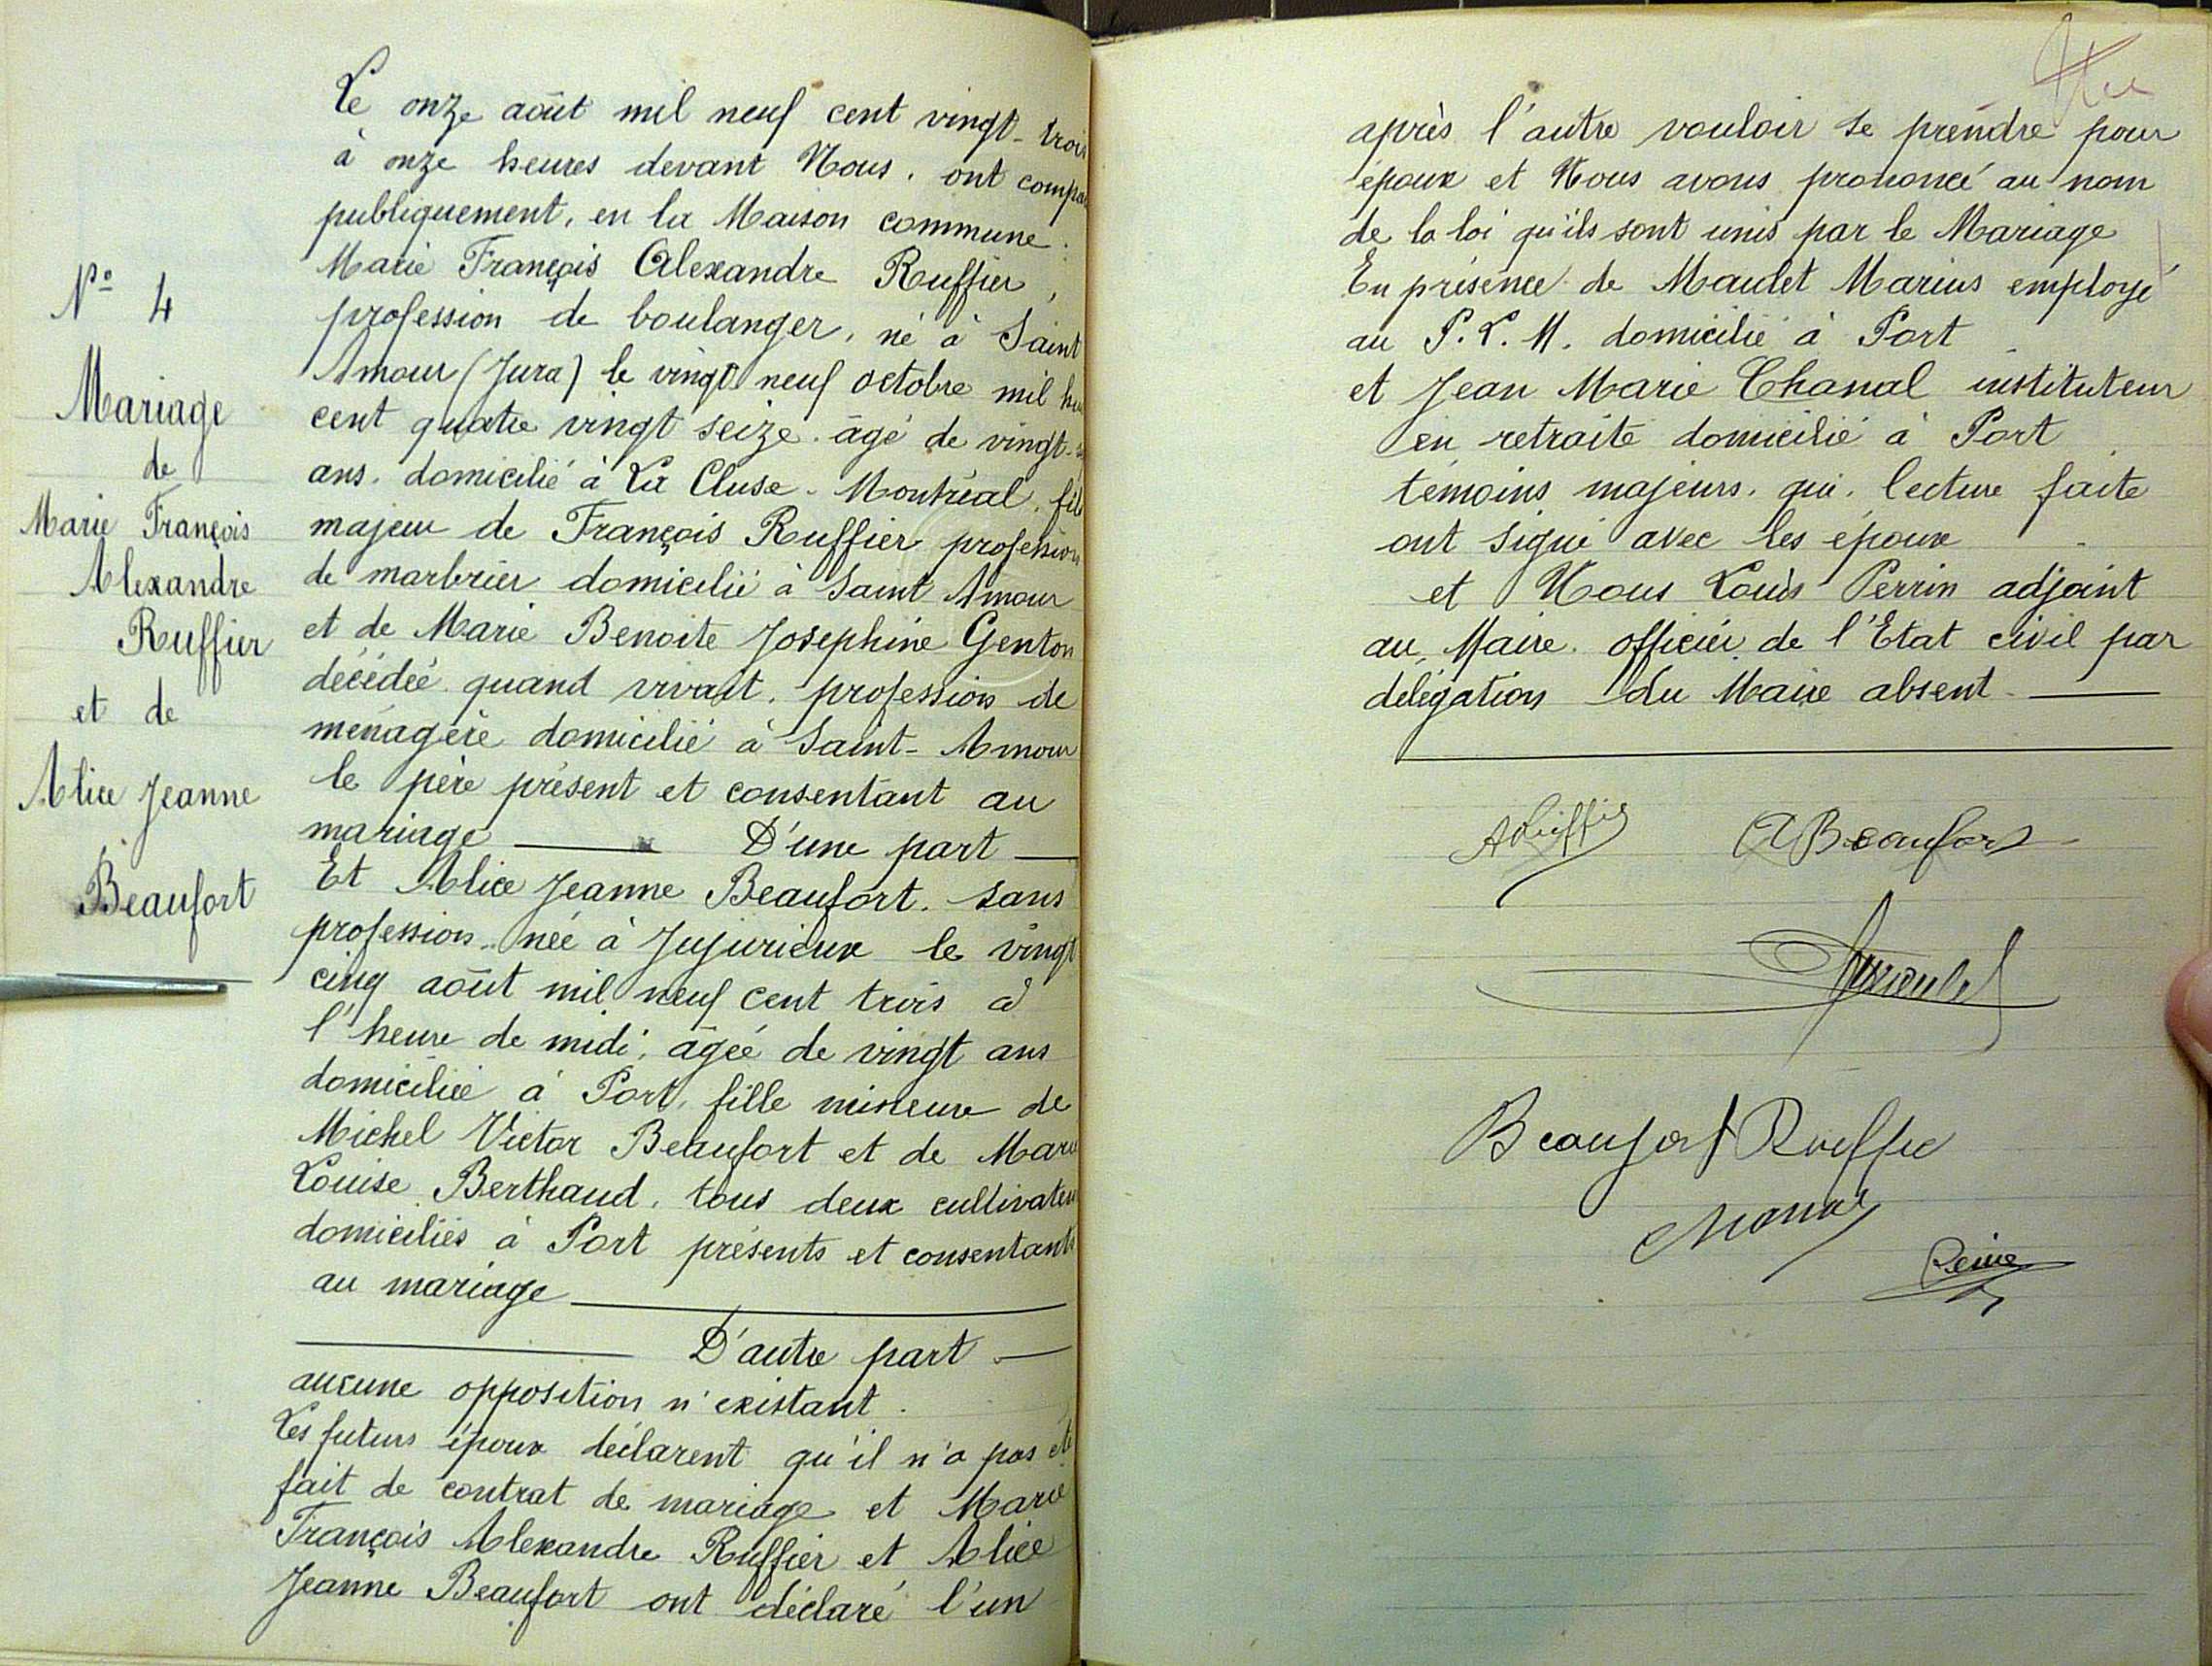 N° 4
Mariage
de
Marie François
Alexandre
Ruffier
et de
Alice Jeanne
Beaufort
Le onze août mil neuf cent vingt-trois
à onze heures devant Nous, ont compa
publiquement, en la Maison commune :
Marie François Alexandre Ruffier,
profession de boulanger, né à Saint
Amour (Jura) le vingt neuf octobre mil hu
cent quatre vingt seize. âgé de vingt-s
ans. domicilié à La Cluse-Montréal, fils
majeur de François Ruffier profession
de marbrier domicilié à Saint Amour
et de Marie Benoite Josephine Genton
décédée quand vivait. profession de
ménagère domicilié à Saint-Amour
le père présent et consentant au
mariage D'une part
Et Alice Jeanne Beaufort. sans
profession née à Jujurieux le vingt
cinq août mil neuf cent trois à
l'heure de midi, âgée de vingt ans
domiciliée à Port, fille mineure de
Michel Victor Beaufort et de Marie
Louise Berthaud, tous deux cultivateu
domiciliés à Port présents et consentants
au mariage
D'autre part
aucune opposition n'existant.
Les futurs époux déclarent qu'il n'a pas été
fait de contrat de mariage et Marie
François Alexandre Ruffier et Alice
Jeanne Beaufort ont déclaré l'un
après l'autre vouloir se prendre pour
époux et Nous avons prononcé au nom
de la loi qu'ils sont unis par le Mariage
En présence de Maudet Marius employé
au P.L.M. domicilié à Port
et Jean Marie Chanal instituteur
en retraite domicilié à Port
témoins majeurs. qui, lecture faite
ont signé avec les époux
et Nous Louis Perrin adjoint
au Maire. officier de l'Etat civil par
délégation du Maire absent.
A Ruffier A Beaufort
Beaufort Ruffie
Chanal